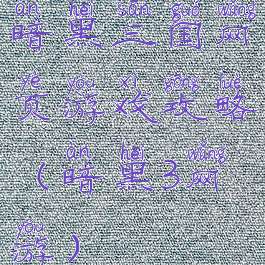 àn hēi sān guó wǎng
暗黑三国网
yè yóu xì gōng lüè
页游戏攻略
àn hēi wǎng
(暗黑3网
yóu
游)